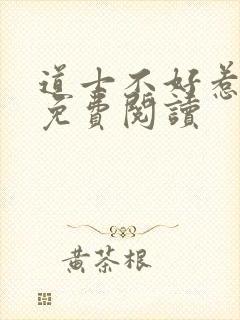 道士不好惹
免費閱讀
黃茶根